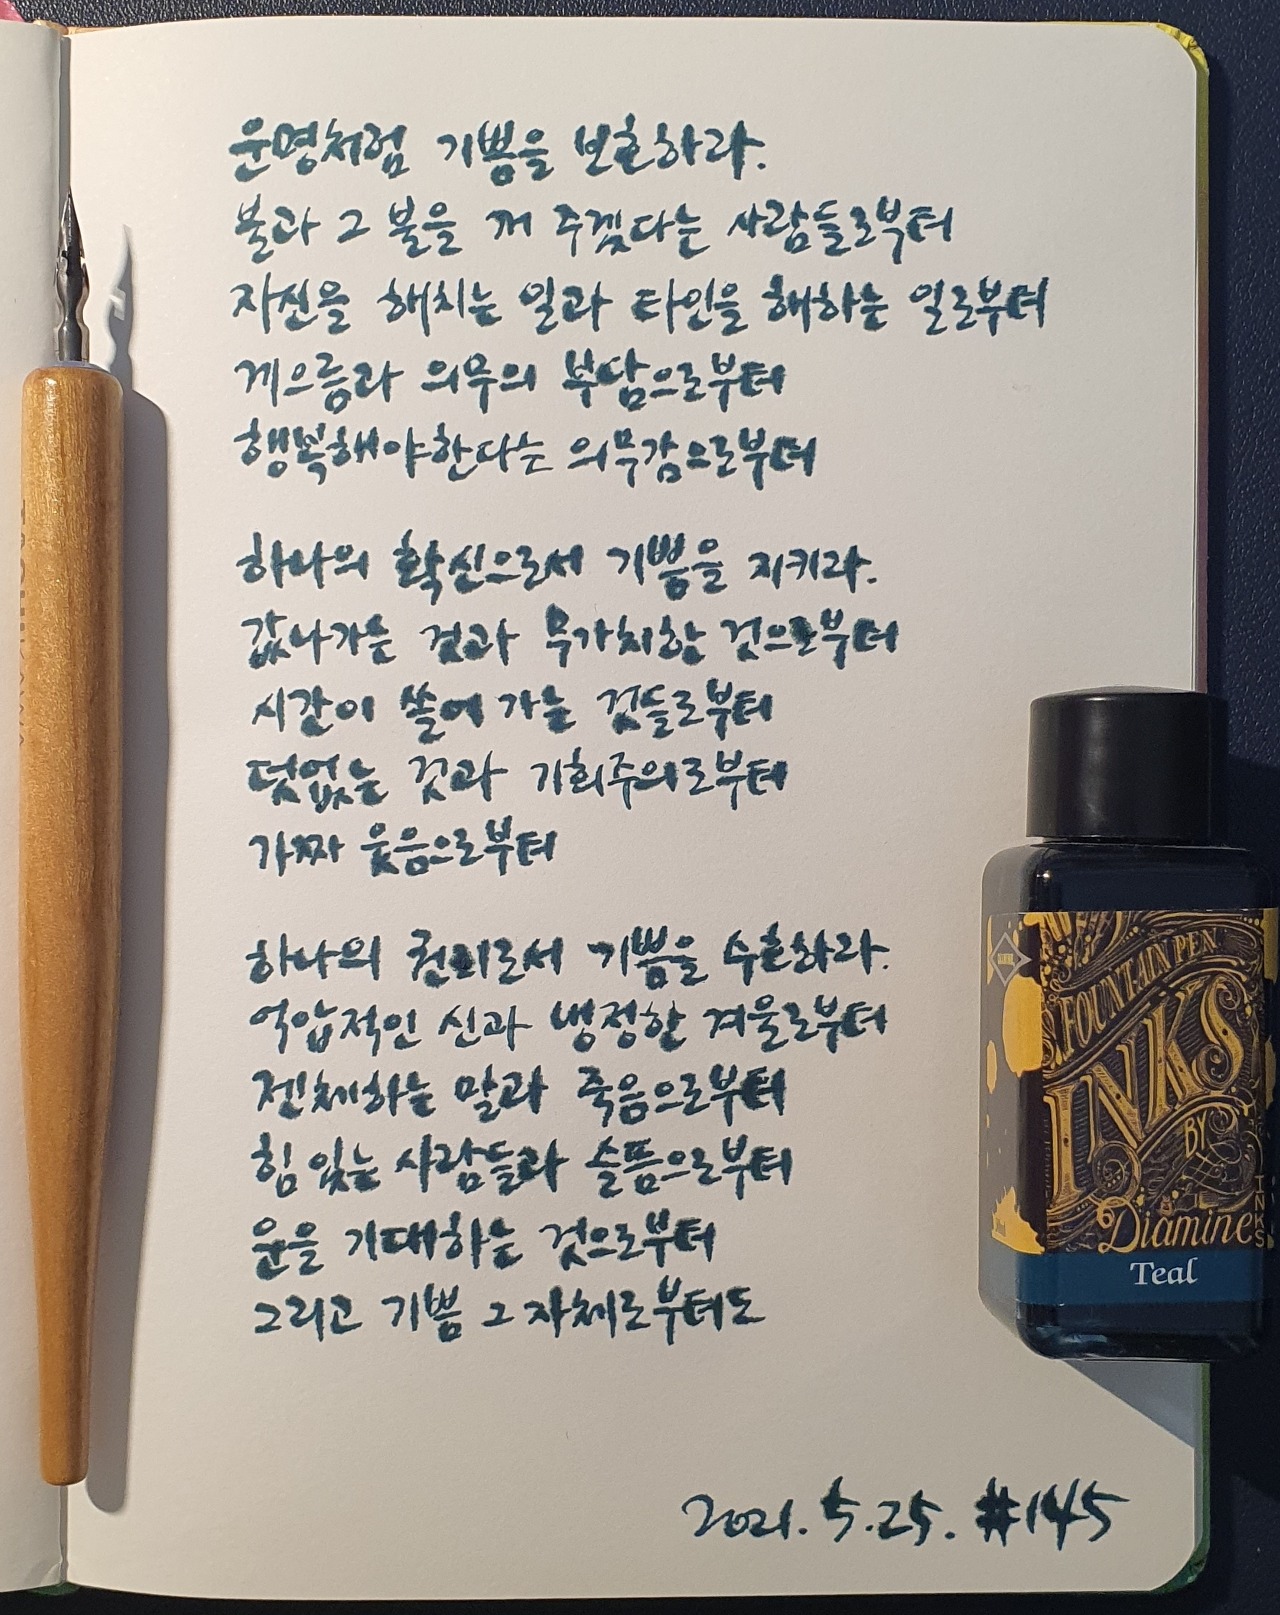 운명처럼 기쁨을 보호하라.
불과 그 불을 꺼 주겠다는 사람들로부터
자신을 해치는 일과 타인을 해하는 일로부터
게으름과 의무의 부담으로부터
행복해야한다는 의무감으로부터
하나의 확신으로서 기쁨을 지키라.
값나가는 것과 무가치한 것으로부터
시간이 쓸어 가는 것들로부터
덧없는 것과 기회주의로부터
가짜 웃음으로부터
하나의 권리로서 기쁨을 수호하라.
억압적인 신과 냉정한 겨울로부터
젠체하는 말과 죽음으로부터
힘 있는 사람들과 슬픔으로부터
운을 기대하는 것으로부터
그리고 기쁨 그 자체로부터도
2021. 5. 25. #145
FOUNTAIN PEN
INKS
BY
Diamine
Teal
INKS